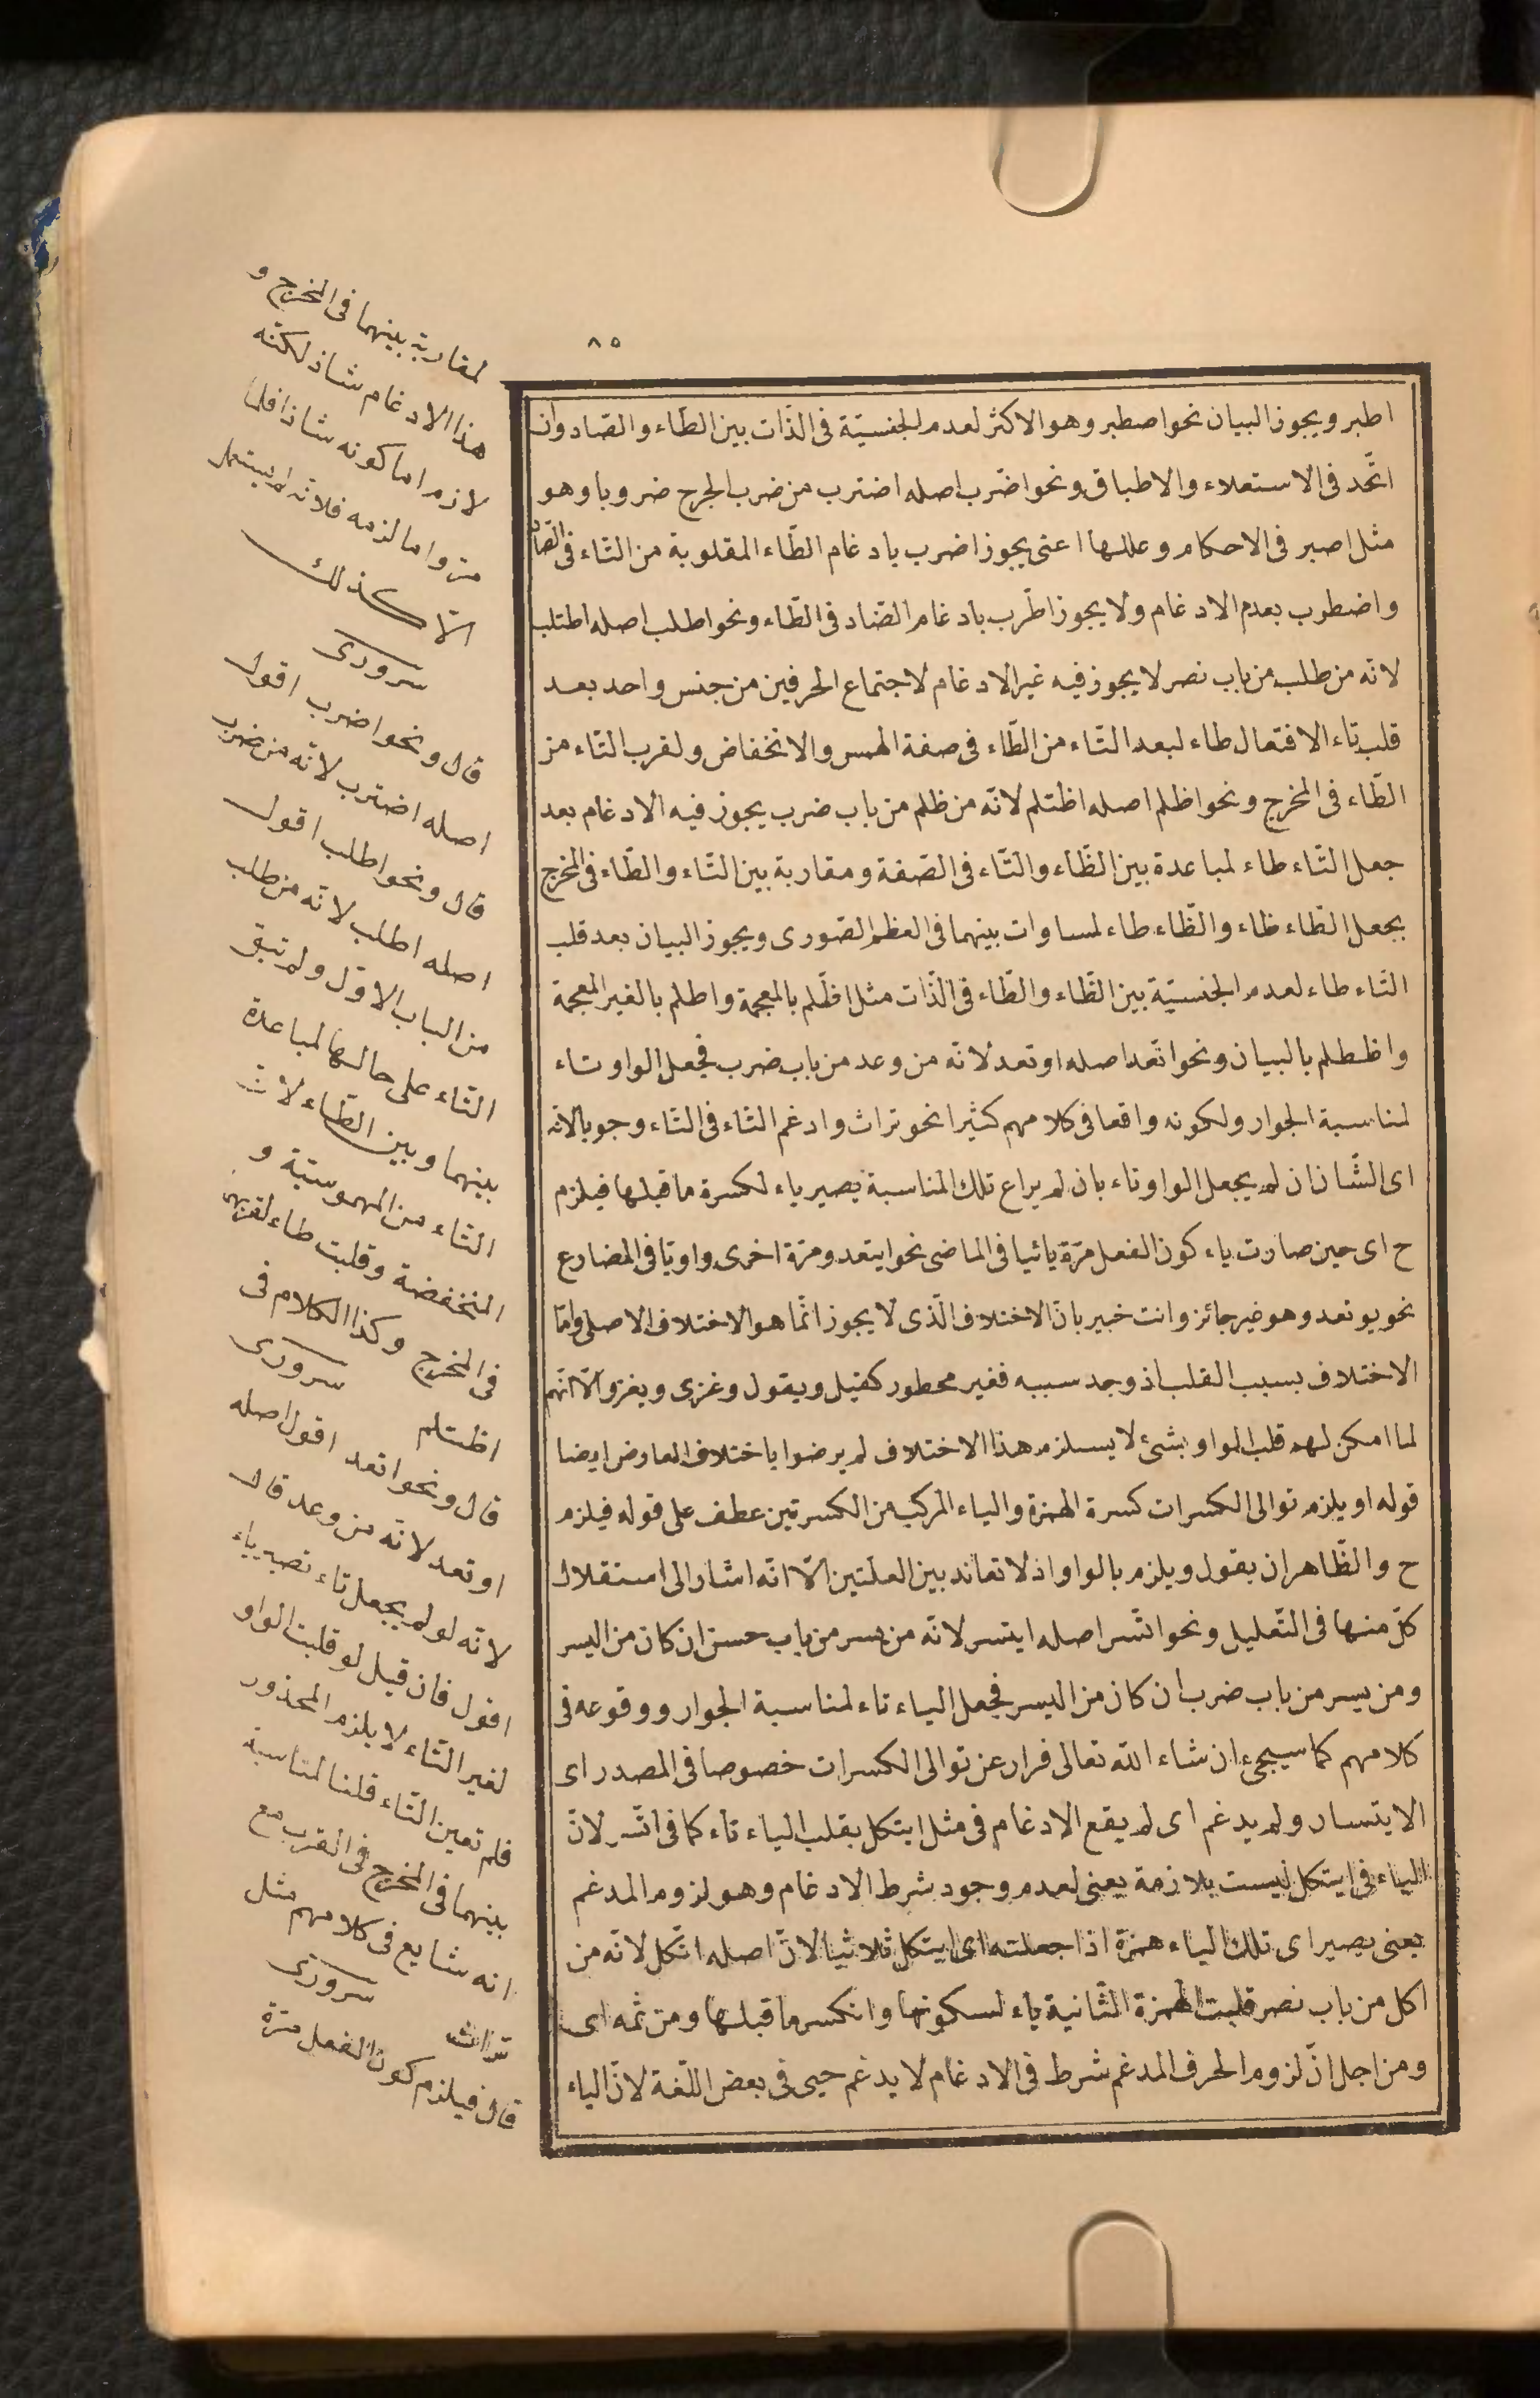 ٨٥
اطبر ويجوز البيان نحو اصطبر وهو الاكثر لعدم الجنسيّة فى الذّات بين الطّاء والصّاد وان
اتّحد فى الاستعلاء والاطباق ونحو اضّرب اصله اضترب من ضرب الجرح ضروبا وهو
مثل اصبر فى الاحكام وعللها اعنى يجوز اضرب بادغام الطّاء المقلوبة من التّاء فى الضاد
واضطرب بعدم الادغام ولا يجوز اطّرب بادغام الضّاد فى الطّاء ونحو اطلب اصله اطتلب
لانّه من طلب من باب نصر لا يجوز فيه غير الادغام لاجتماع الحرفين من جنس واحد بعد
قلب تاء الافتعال طاء لبعد التّاء من الطّاء فى صفة الهمس والانخفاض ولقرب التّاء من
الطّاء فى المخرج ونحو اظلم اصله اظتلم لانّه من ظلم من باب ضرب يجوز فيه الادغام بعد
جعل التّاء طاء لمباعدة بين الظّاء والتّاء فى الصّفة ومقاربة بين التّاء والطّاء فى المخرج
بجعل الطّاء ظاء والظّاء طاء لمساوات بينهما فى العظم الصّورى ويجوز البيان بعد قلب
التّاء طاء لعدم الجنسيّة بين الظّاء والطّاء فى الذّات مثل اظّلم بالمعجمة واطلم بالغير المعجمة
واظطلم بالبيان ونحو اتّعد اصله اوتعد لانّه من وعد من باب ضرب فجعل الواو تاء
لمناسبة الجوار ولكونه واقعا فى كلامهم كثيرا نحو تراث وادغم التاء فى التاء وجوبا لانّه
اى الشّان ان لم يجعل الواو تاء بان لم يراع تلك المناسبة يصير ياء لكسرة ما قبلها فيلزم
ح اى حين صارت ياء كون الفعل مرّة يائيا فى الماضى نحو ايتعد ومرّة اخرى واويّا فى المضارع
نحو يوتعد وهو غير جائز وانت خبير بانّ الاختلاف الّذى لا يجوز انّما هو الاختلاف الاصلى وامّا
الاختلاف بسبب القلب اذ وجد سببه فغير محطور كقيل ويقول وغزى ويغزو الّا انّهم
لما امكن لهم قلب الواو بشئ لا يسلزم هذا الاختلاف لم يرضوا باختلاف العارض ايضا
قوله او يلزم توالى الكسرات كسرة الهمزة والياء المركب من الكسرتين عطف على قوله فيلزم
ح والظّاهر ان يقول ويلزم بالواو اذ لا تعاند بين العلّتين الّا انّه اشار الى استقلال
كلّ منها فى التّعليل ونحو اتّسر اصله ايتسر لانّه من يسر من باب حسن ان كان من اليسر
ومن يسر من باب ضرب ان كان من اليسر فجعل الياء تاء لمناسبة الجوار ووقوعه فى
كلامهم كما سيجئ ان شاء الله تعالى فرار عن توالى الكسرات خصوصا فى المصدر اى
الايتسار ولم يدغم اى لم يقع الادغام فى مثل ايتكل بقلب الياء تاء كما فى اتّسر لانّ
الياء فى ايتكل ليست بلازمة يعنى لعدم وجود شرط الادغام وهو لزوم المدغم
يعنى يصير اى تلك الياء همزة اذا جعلته اى ايتكل ثلاثيا لانّ اصله ائكل لانّه من
اكل من باب نصر قلبت الهمزة الثّانية ياء لسكونها وانكسر ما قبلها ومن ثمه اى
ومن اجل انّ لزوم الحرف المدغم شرط فى الادغام لا يدغم حيى فى بعض اللّغة لانّ الياء
لمقاربة بينهما فى المخرج و
هذا الادغام شاذ لكنّه
لازم اما كونه شاذا فلما
مرّ واما لزمه فلانّه لم يستعمل
الّا كذلك
سرورى
قال ونحو اضرب اقول
اصله اضترب لانّه من ضرب
قال ونحو اطلب اقول
اصله اطلب لانّه من طلب
من الباب الاوّل ولم تبق
التّاء على حالها لمباعدة
بينهما وبين الطّاء لانّ
التّاء من المهموسيّة و
المنخفضة وقلبت طاء لقربها
فى المخرج وكذا الكلام فى
اظتلم سرورى
قال ونحو اتعد اقول اصله
اوتعد لانّه من وعد قال
لانّه لو لم يجعل تاء تصير ياء
اقول فان قيل لو قلبت الواو
لغير التّاء لا يلزم المحذور
فلم تعين التّاء قلنا لمناسبة
بينهما فى المخرج فى القرب مع
انه شايع فى كلامهم مثل
تراث سرورى
قال فيلزم كون الفعل مرّة